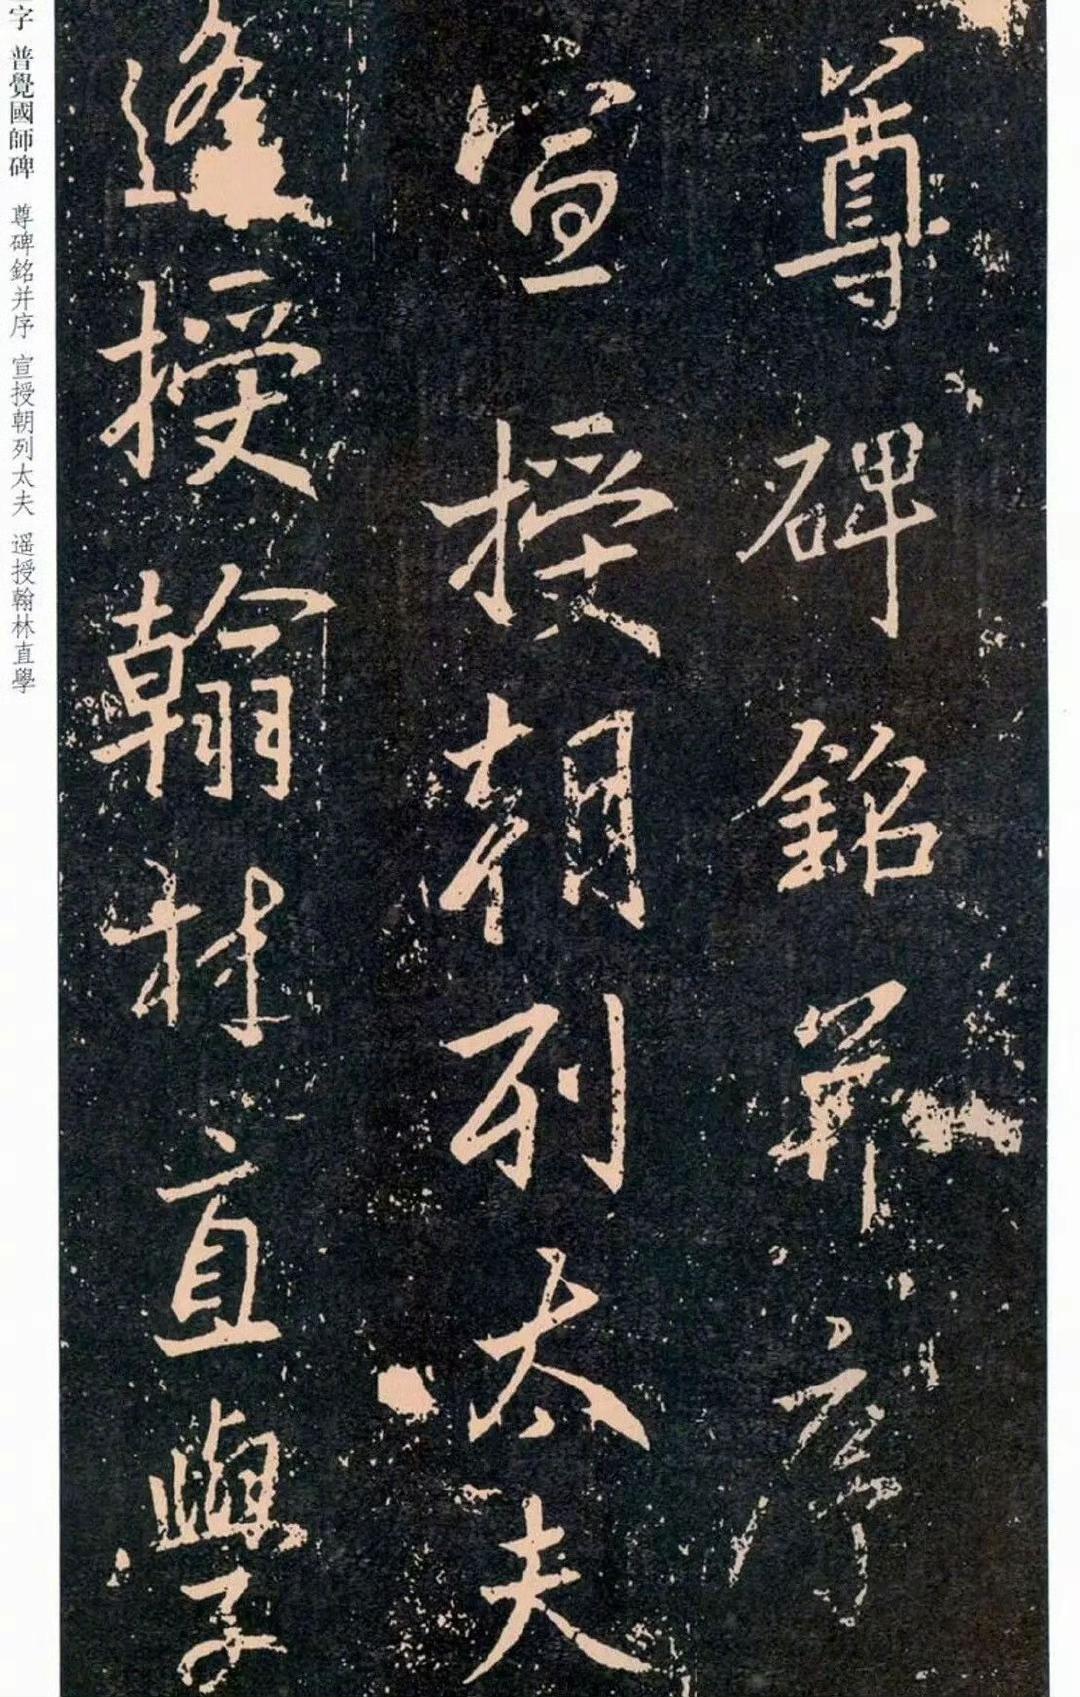 尊碑銘并序
宣授朝列太夫
遥授翰林直學
字 普覺國師碑 尊碑銘并序 宣授朝列太夫 遥授翰林直學